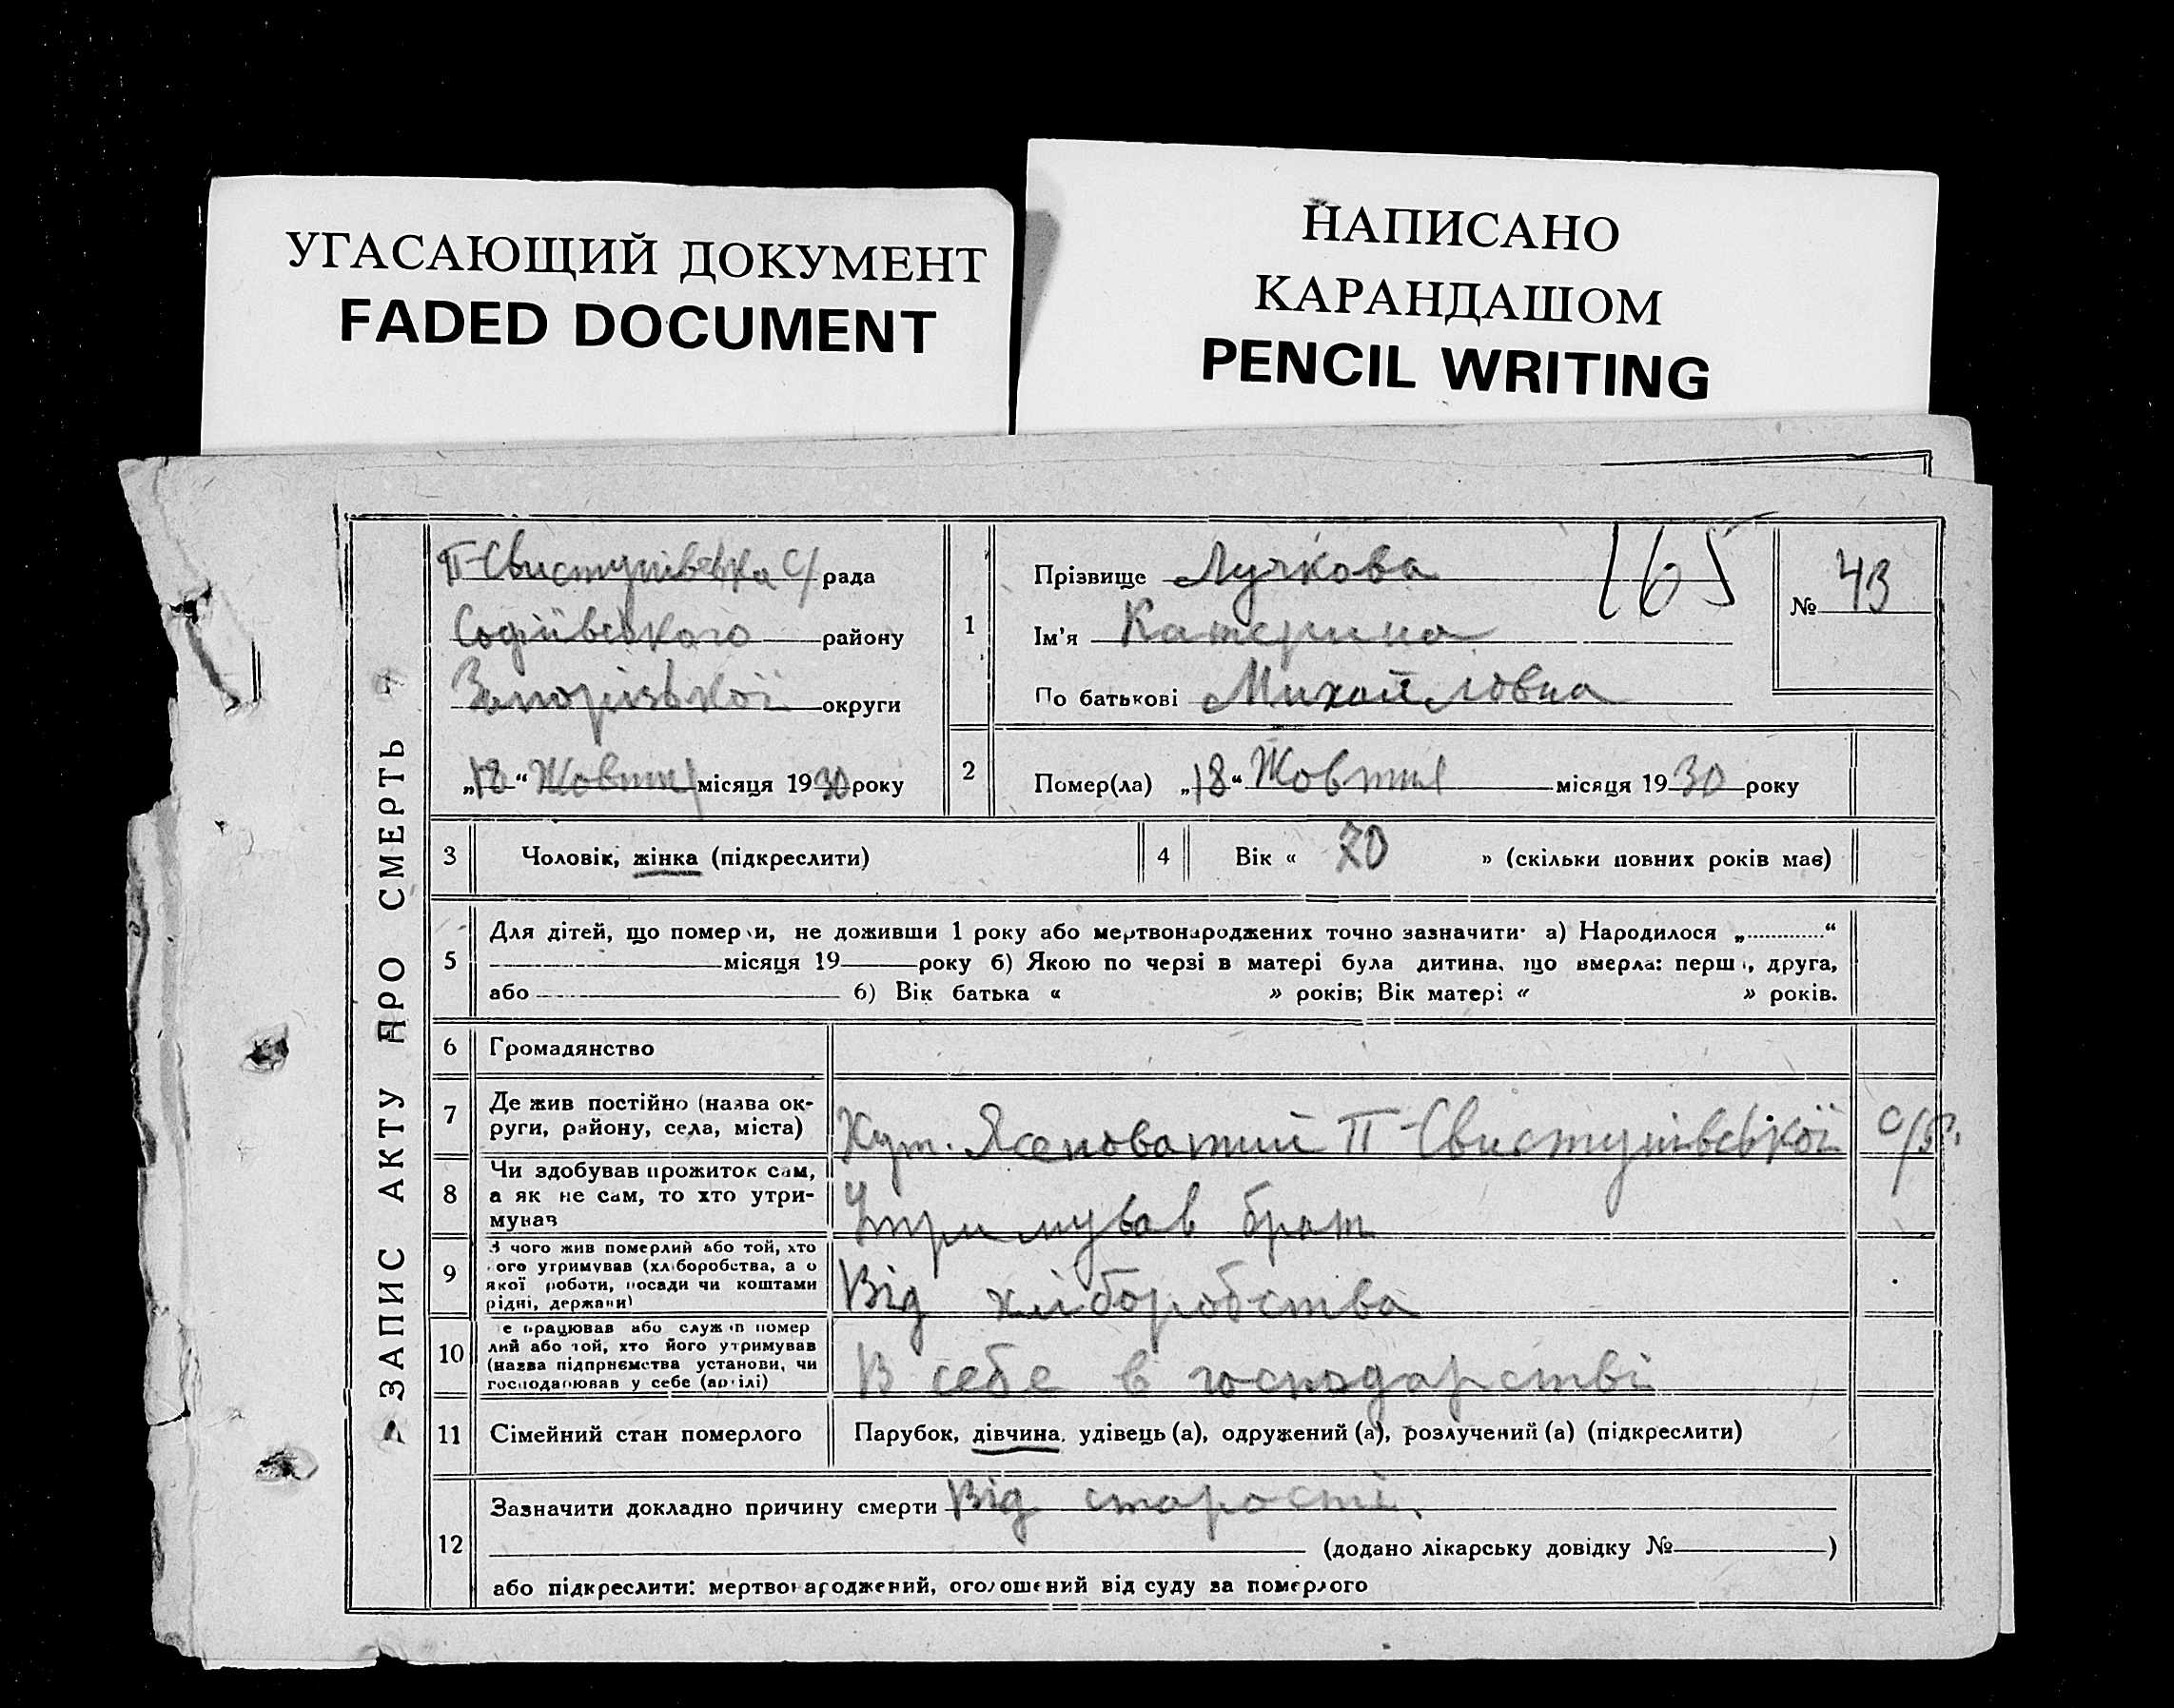 УГАСАЮЩИЙ ДОКУМЕНТ
FADED DOCUMENT
НАПИСАНО
КАРАНДАШОМ
PENCIL WRITING
ЗАПИС АКТУ ПРО СМЕРТЬ
П-Свистунівська С/рада
Софіївського району
Запорізької округи
„18“ Жовтня місяця 1930 року
1
Прізвище Лучкова
165
Ім'я Катерина
По батькові Михайловна
№ 43
2
Помер(ла) „18“ Жовтня місяця 1930 року
3 Чоловік, жінка (підкреслити)
4 Вік « 70 » (скільки повних років має)
5
Для дітей, що померли, не доживши 1 року або мертвонароджених точно зазначити: а) Народилося „..............“
місяця 19 року б) Якою по черзі в матері була дитина, що вмерла: перша, друга,
або б) Вік батька « » років; Вік матері « » років.
6 Громадянство
7
Де жив постійно (назва ок-
руги, району, села, міста)
Хут. Ясеноватий П-Свистунівської с/р.
8
Чи здобував прожиток сам,
а як не сам, то хто утри-
мував
Утримував брат
9
З чого жив померлий або той, хто
його утримував (хліборобства, а о
якої роботи, посади чи коштами
рідні, держави)
Від хліборобства
10
е працював або служив помер
лий або той, хто його утримував
(назва підприємства установи, чи
господарював у себе (артілі)
В себе в господарстві
11 Сімейний стан померлого
Парубок, дівчина, удівець (а), одружений (а), розлучений (а) (підкреслити)
12
Зазначити докладно причину смерти Від старости.
(додано лікарську довідку № )
або підкреслити: мертвонароджений, оголошений від суду за померлого